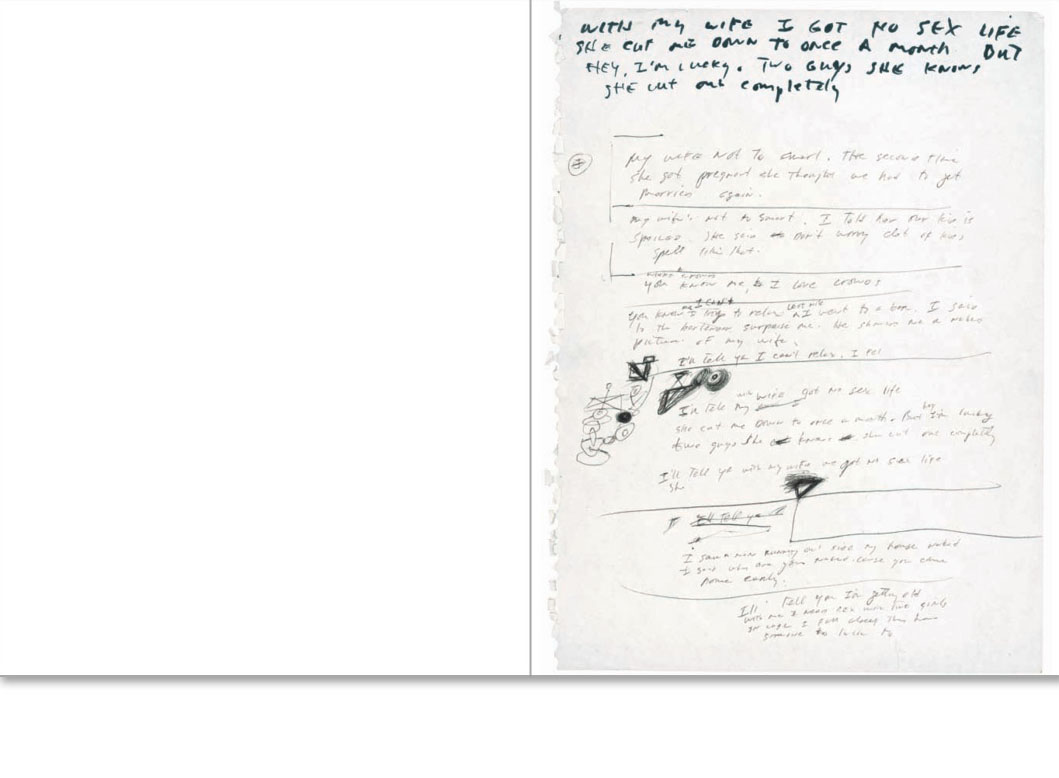 WITH MY WIFE I GOT NO SEX LIFE
SHE CUT ME DOWN TO ONCE A MONTH BUT
HEY, I'M LUCKY. TWO GUYS SHE KNOWS
SHE CUT out completely
My wife's Not To smart. The second time
she got pregnant she thought we had to get
Married again.
my wife's not to smart. I Told her our kid is
spoiled. She said Don't worry alot of kids
spell like that.
You know me, I love crowds
You know I try to relax I went to a bar. I said
to the bartender surprise me. He shows me a naked
picture of my wife.
I'll tell ya I can't relax. I
I'll tell my wife got no sex life
she cut me Down to once a month. But hey I'm lucky
two guys she knows she cut out completely
I'll Tell ya with my wife we got no sex life
She
I'll Tell ya
I saw a man running outside my house naked
I said why are you naked cause you came
home early.
I'll Tell you I'm getting old
with me I need sex with two girls
I fall asleep they have
someone to talk to